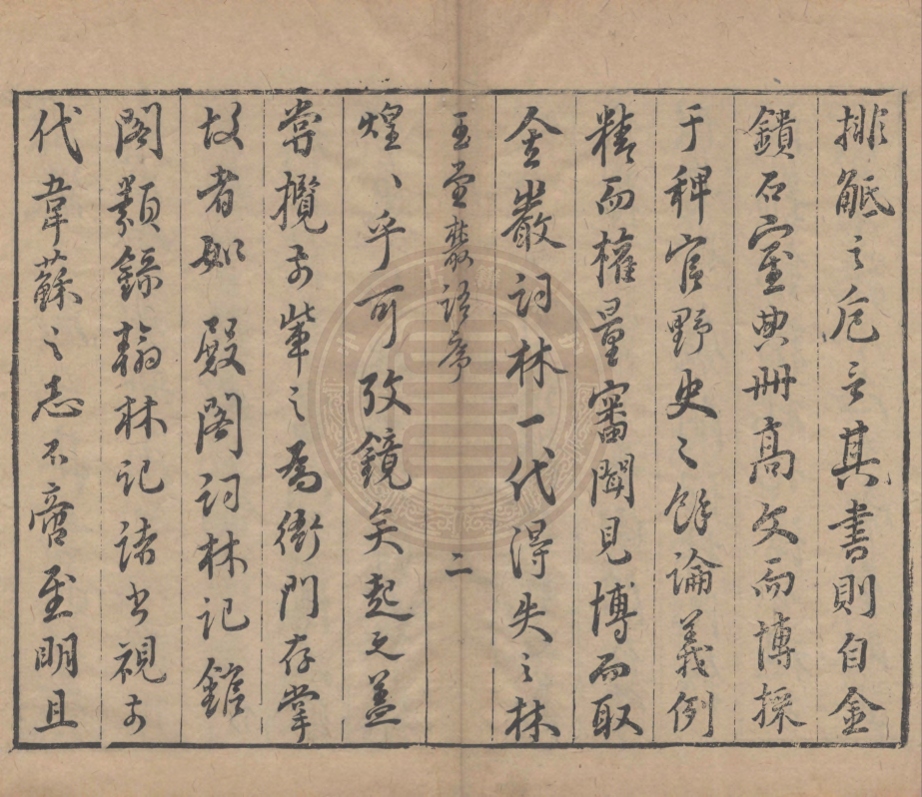 排觝之卮言其書則自金
鐀石室典冊高文而博採
于稗官野史之餘論義例
精而權量審聞見博而取
舍嚴詞林一代得失之林
玉堂叢語序 二
煌煌乎可攷鏡矣起之蓋
嘗攬前輩之為衙門存掌
故者如殿閣詞林記館
閣類錄翰林記諸書視前
代韋蘇之志不啻至明且